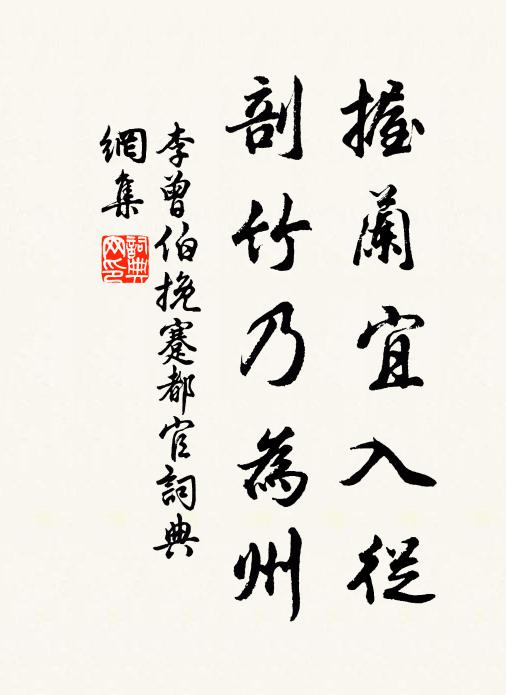 握蘭宜入從
剖竹乃為州
李曾伯挽蹇都官詞典
網集
詞典網印